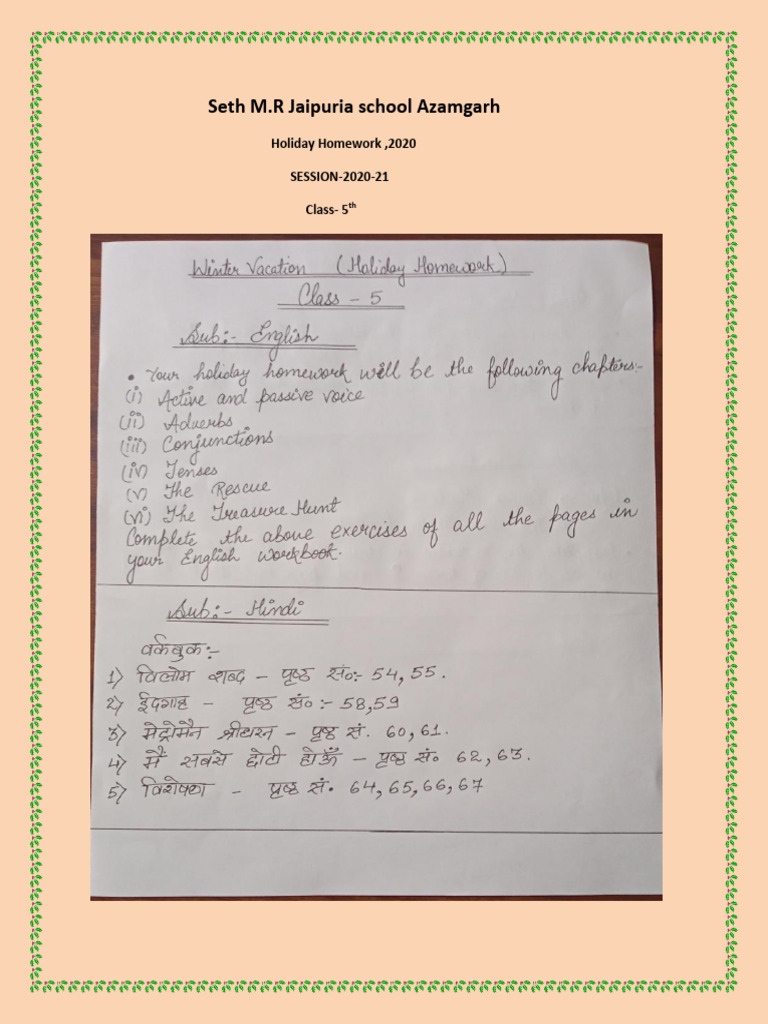 Seth M.R Jaipuria school Azamgarh
Holiday Homework ,2020
SESSION-2020-21
Class- 5th
Winter Vacation (Holiday Homework)
Class - 5
Sub:- English
• Your holiday homework will be the following chapters:-
(i) Active and passive voice
(ii) Adverbs
(iii) Conjunctions
(iv) Tenses
(v) The Rescue
(vi) The Treasure Hunt
Complete the above exercises of all the pages in
your English workbook.
Sub:- Hindi
वर्कबुक:-
1) विलोम शब्द - पृष्ठ सं०:- 54, 55.
2) ईदगाह - पृष्ठ सं० :- 58,59
3) मेट्रोमैन श्रीधरन - पृष्ठ सं. 60, 61.
4) मैं सबसे छोटी होऊँ - पृष्ठ सं० 62, 63.
5) विशेषण - पृष्ठ सं. 64, 65, 66, 67